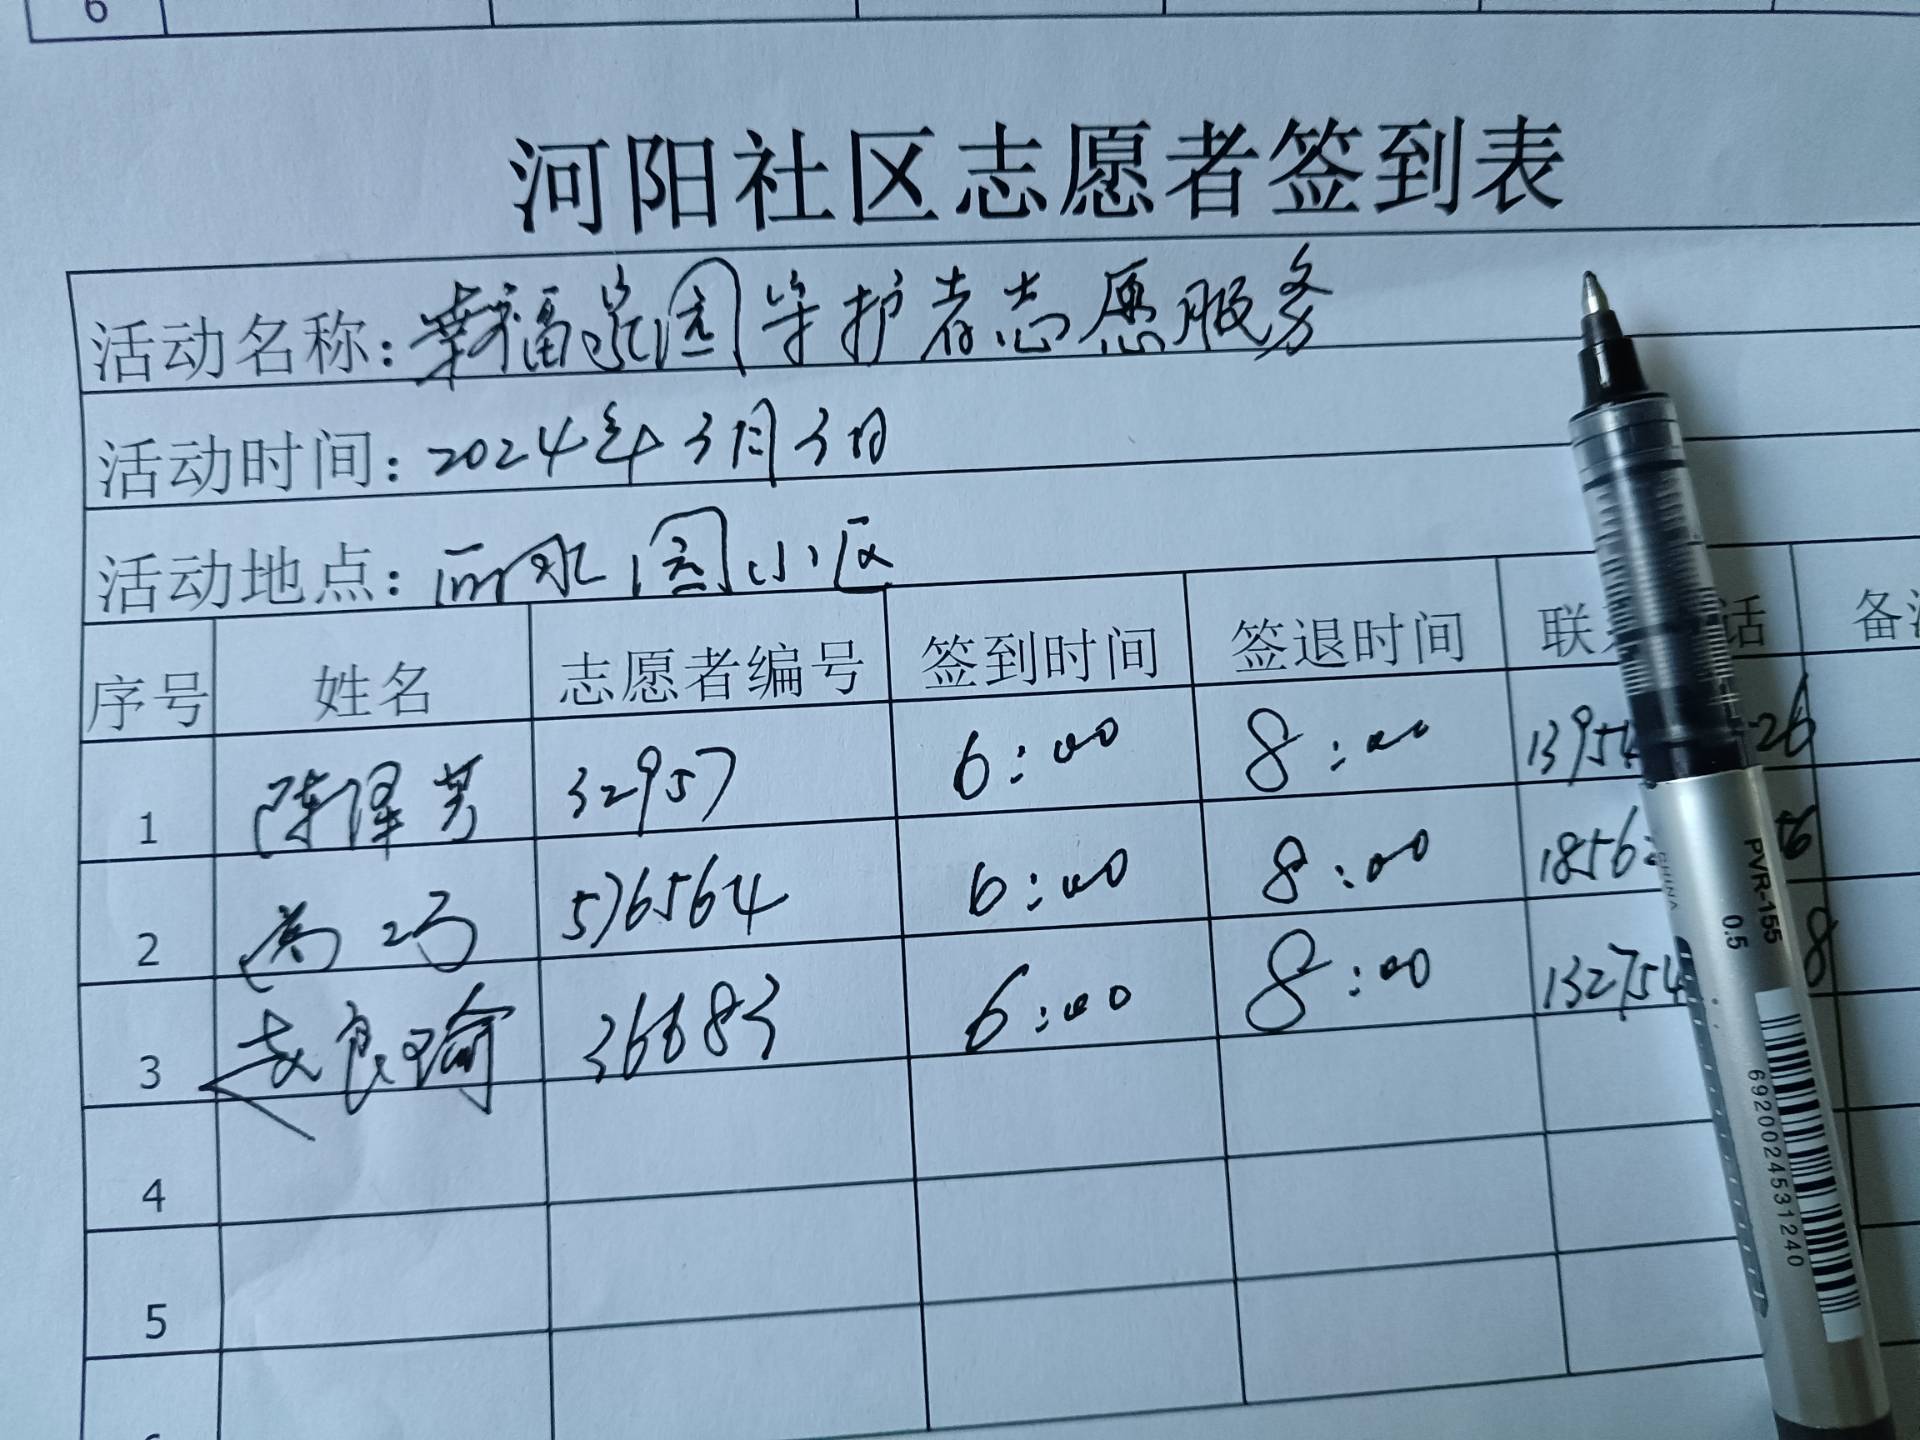 6
河阳社区志愿者签到表
活动名称：幸福家园守护者志愿服务
活动时间：2024年3月3日
活动地点：丽水园小区
序号 姓名 志愿者编号 签到时间 签退时间 联 话 备
1 陈泽芳 32957 6:00 8:00 1395 26
2 576564 6:00 8:00 1856 56
3 袁良瑜 36683 6:00 8:00 132754 8
4
5
PVR-155
0.5
CHINA
6920024531240